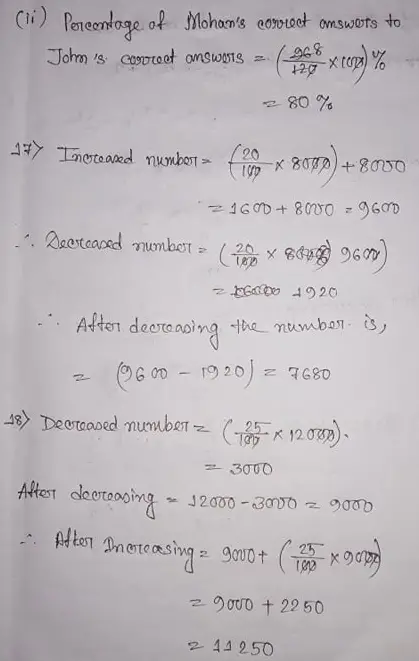 (ii) Percentage of Mohan's correct answers to
John's correct answers = (968/120 × 100) %
= 80 %
17) Increased number = (20/100 × 8000) + 8000
= 1600 + 8000 = 9600
∴ Decreased number = (20/100 × 9600)
= 1920
∴ After decreasing the number is,
= (9600 - 1920) = 7680
18) Decreased number = (25/100 × 12000).
= 3000
After decreasing = 12000 - 3000 = 9000
∴ After Increasing = 9000 + (25/100 × 9000)
= 9000 + 2250
= 11250